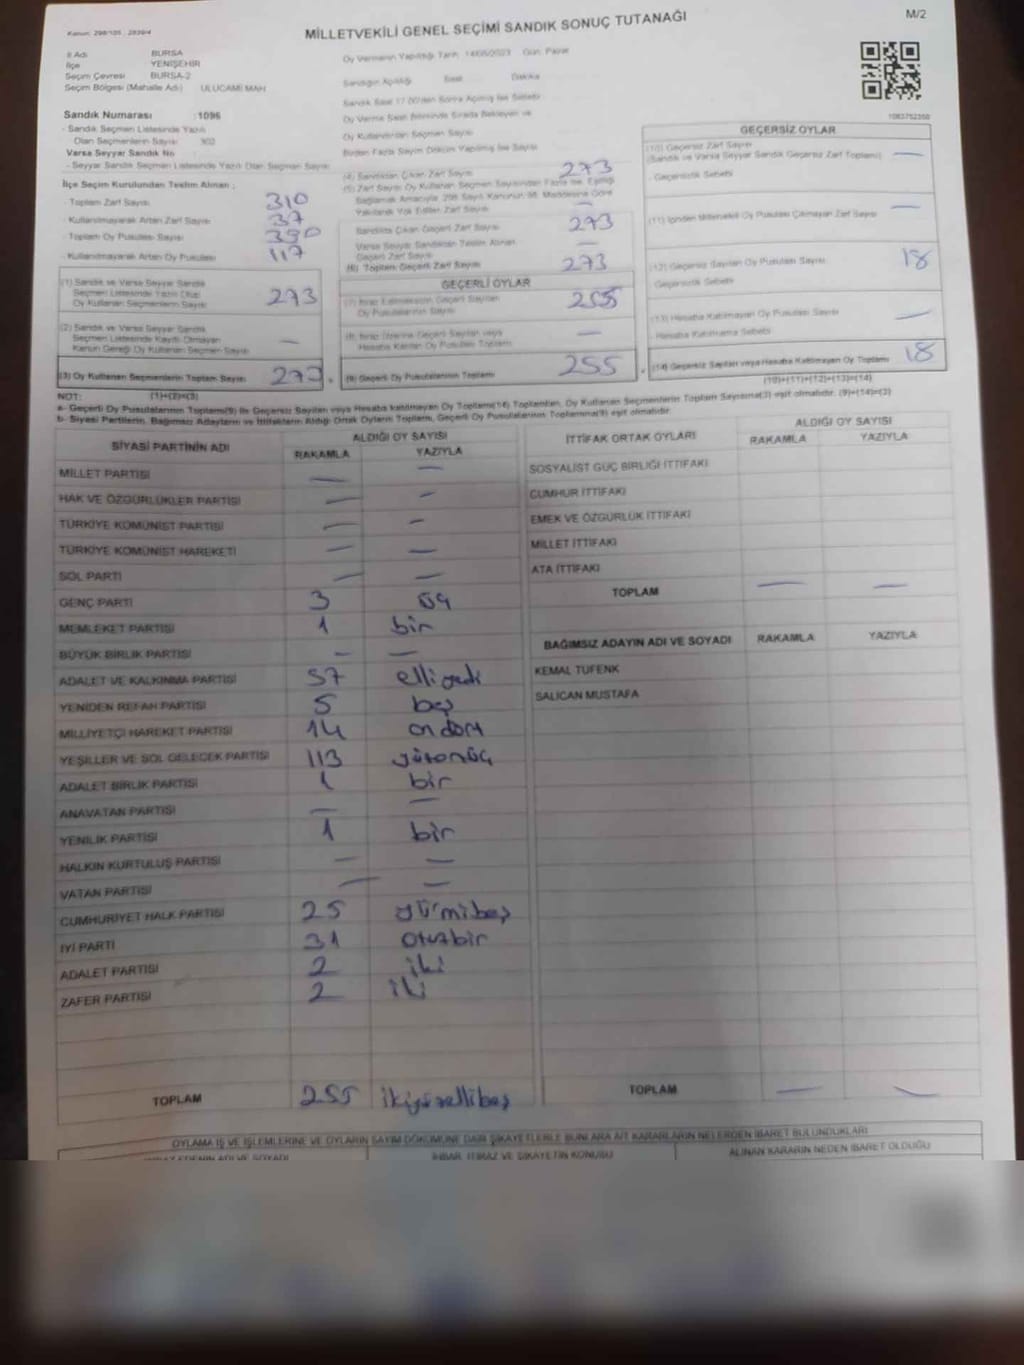 Kanun: 298/105, 2839/4
MİLLETVEKİLİ GENEL SEÇİMİ SANDIK SONUÇ TUTANAĞI
M/2
İl Adı BURSA
İlçe YENİŞEHİR
Seçim Çevresi BURSA-2
Seçim Bölgesi (Mahalle Adı) ULUCAMİ MAH
Oy Vermenin Yapıldığı Tarih: 14/05/2023 Gün: Pazar
Sandığın Açıldığı Saat Dakika
Sandık Saat 17.00'den Sonra Açılmış İse Sebebi
Oy Verme Saati Bitiminde Sırada Bekleyen ve
Oy Kullandırılan Seçmen Sayısı
Birden Fazla Sayım Döküm Yapılmış İse Sayısı
Sandık Numarası : 1096
- Sandık Seçmen Listesinde Yazılı
Olan Seçmenlerin Sayısı 302
Varsa Seyyar Sandık No :
- Seyyar Sandık Seçmen Listesinde Yazılı Olan Seçmen Sayısı
İlçe Seçim Kurulundan Teslim Alınan ;
- Toplam Zarf Sayısı 310
- Kullanılmayarak Artan Zarf Sayısı 37
- Toplam Oy Pusulası Sayısı 390
- Kullanılmayarak Artan Oy Pusulası 117
(1) Sandık ve Varsa Seyyar Sandık
Seçmen Listesinde Yazılı Olup
Oy Kullanan Seçmenlerin Sayısı 273
(2) Sandık ve Varsa Seyyar Sandık
Seçmen Listesinde Kayıtlı Olmayan
Kanun Gereği Oy Kullanan Seçmen Sayısı —
(3) Oy Kullanan Seçmenlerin Toplam Sayısı 273
(1)+(2)=(3)
(4) Sandıktan Çıkan Zarf Sayısı 273
(5) Zarf Sayısı Oy Kullanan Seçmen Sayısından Fazla İse, Eşitliği
Sağlamak Amacıyla 298 Sayılı Kanunun 98. Maddesine Göre
Yakılarak Yok Edilen Zarf Sayısı —
Sandıkta Çıkan Geçerli Zarf Sayısı 273
Varsa Seyyar Sandıktan Teslim Alınan
Geçerli Zarf Sayısı —
(6) Toplam Geçerli Zarf Sayısı 273
GEÇERLİ OYLAR
(7) İtiraz Edilmeksizin Geçerli Sayılan
Oy Pusulası Sayısı 255
(8) İtiraz Üzerine Geçerli Sayılan veya
Hesaba Katılan Oy Pusulası Toplamı —
(9) Geçerli Oy Pusulalarının Toplamı 255
GEÇERSİZ OYLAR
(10) Geçersiz Zarf Sayısı
(Sandık ve Varsa Seyyar Sandık Geçersiz Zarf Toplamı) —
- Geçersizlik Sebebi
(11) İçinden Milletvekili Oy Pusulası Çıkmayan Zarf Sayısı —
(12) Geçersiz Sayılan Oy Pusulası Sayısı 18
Geçersizlik Sebebi
(13) Hesaba Katılmayan Oy Pusulası Sayısı —
Hesaba Katılmama Sebebi
(14) Geçersiz Sayılan veya Hesaba Katılmayan Oy Toplamı 18
(10)+(11)+(12)+(13)=(14)
NOT:
a- Geçerli Oy Pusulalarının Toplamı(9) ile Geçersiz Sayılan veya Hesaba katılmayan Oy Toplamı(14) Toplamları, Oy Kullanan Seçmenlerin Toplam Sayısına(3) eşit olmalıdır. (9)+(14)=(3)
b- Siyasi Partilerin, Bağımsız Adayların ve İttifakların Aldığı Ortak Oyların Toplamı, Geçerli Oy Pusulalarının Toplamına(9) eşit olmalıdır.
SİYASİ PARTİNİN ADI ALDIĞI OY SAYISI
RAKAMLA YAZIYLA
MİLLET PARTİSİ — —
HAK VE ÖZGÜRLÜKLER PARTİSİ — —
TÜRKİYE KOMÜNİST PARTİSİ — —
TÜRKİYE KOMÜNİST HAREKETİ — —
SOL PARTİ — —
GENÇ PARTİ 3 üç
MEMLEKET PARTİSİ 1 bir
BÜYÜK BİRLİK PARTİSİ — —
ADALET VE KALKINMA PARTİSİ 57 elliyedi
YENİDEN REFAH PARTİSİ 5 beş
MİLLİYETÇİ HAREKET PARTİSİ 14 ondört
YEŞİLLER VE SOL GELECEK PARTİSİ 113 yüzonüç
ADALET BİRLİK PARTİSİ 1 bir
ANAVATAN PARTİSİ — —
YENİLİK PARTİSİ 1 bir
HALKIN KURTULUŞ PARTİSİ — —
VATAN PARTİSİ — —
CUMHURİYET HALK PARTİSİ 25 yirmibeş
İYİ PARTİ 31 otuzbir
ADALET PARTİSİ 2 iki
ZAFER PARTİSİ 2 iki
TOPLAM 255 ikiyüzellibeş
İTTİFAK ORTAK OYLARI ALDIĞI OY SAYISI
RAKAMLA YAZIYLA
SOSYALİST GÜÇ BİRLİĞİ İTTİFAKI
CUMHUR İTTİFAKI
EMEK VE ÖZGÜRLÜK İTTİFAKI
MİLLET İTTİFAKI
ATA İTTİFAKI
TOPLAM — —
BAĞIMSIZ ADAYIN ADI VE SOYADI RAKAMLA YAZIYLA
KEMAL TÜFENK
SALİCAN MUSTAFA
TOPLAM — —
OYLAMA İŞ VE İŞLEMLERİNE VE OYLARIN SAYIM DÖKÜMÜNE DAİR ŞİKAYETLERLE BUNLARA AİT KARARLARIN NELERDEN İBARET BULUNDUKLARI
İHBAR, İTİRAZ VE ŞİKAYETİN KONUSU
ALINAN KARARIN NEDEN İBARET OLDUĞU